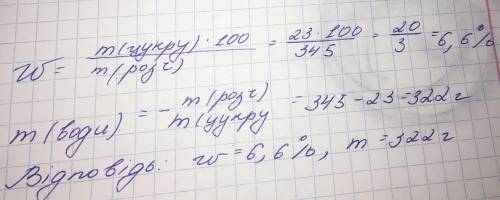 w = m(цукру) · 100 / m(розч) = 23 · 100 / 345 = 20 / 3 = 6,6%
m(води) = - m(розч) / m(цукру = 345 - 23 = 322 г
Відповідь: w = 6,6%, m = 322 г